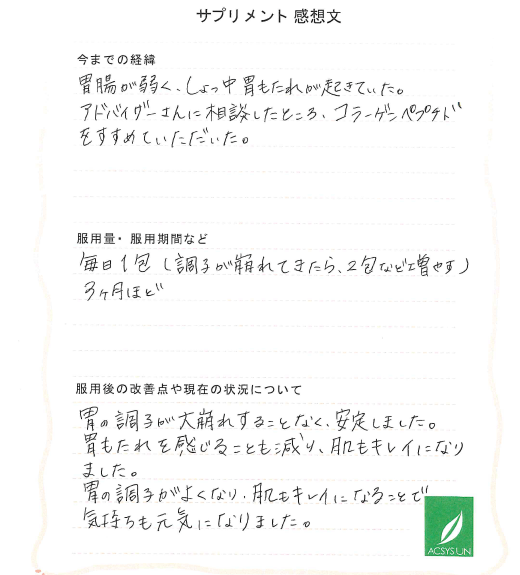 サプリメント 感想文
今までの経緯
胃腸が弱く、しょっ中胃もたれが起きていた。
アドバイザーさんに相談したところ、コラーゲンペプチド
をすすめていただいた。
服用量・服用期間など
毎日1包(調子が崩れてきたら、2包など増やす)
3ヶ月ほど
服用後の改善点や現在の状況について
胃の調子が大崩れすることなく、安定しました。
胃もたれを感じることも減り、肌もキレイになり
ました。
胃の調子がよくなり、肌もキレイになることで
気持ちも元気になりました。
ACSYSUN